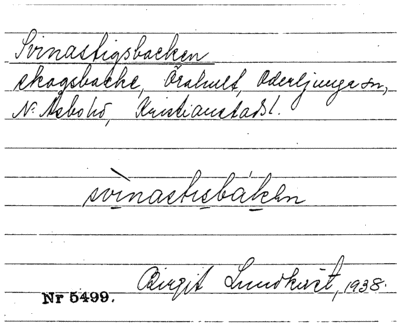 Svinastigsbacken
skogsbacke, Örahult, Oderljunga sn,
N. Åsbo hd, Kristianstads l.
svìnastisbáken
Birgit Lundkvist, 1938.
Nr 5499.